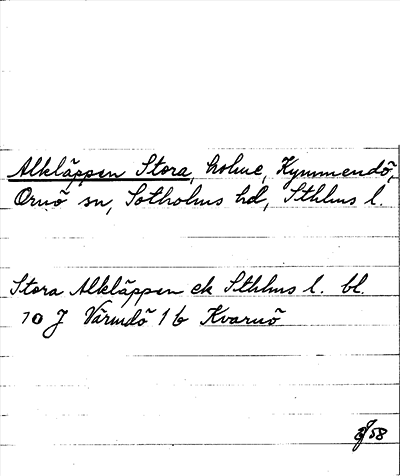 Alkläppen Stora, holme, Kymmendö,
Ornö sn, Sotholms hd, Sthlms l.
Stora Alkläppen ek Sthlms l. bl.
10 J Värmdö 1 b Kvarnö
58